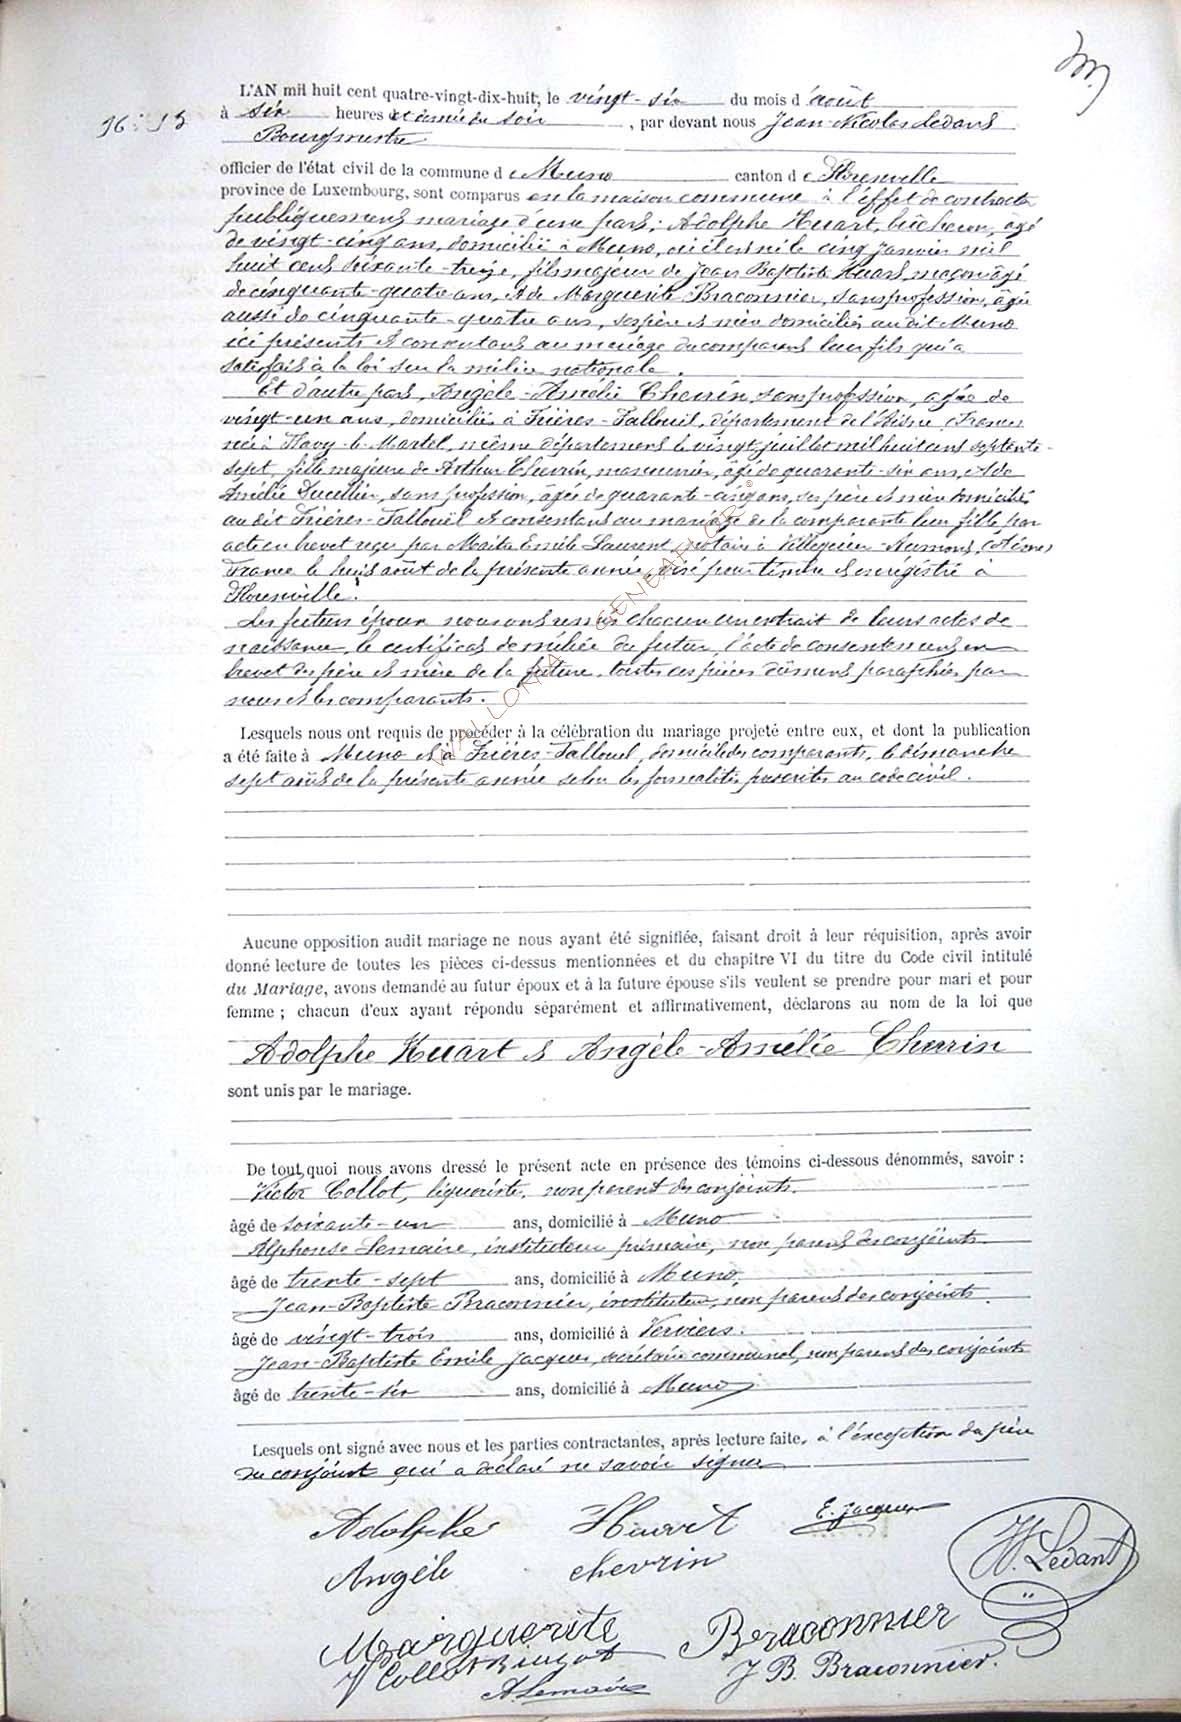 L'AN mil huit cent quatre-vingt-dix-huit, le vingt-six du mois d'août
16:15
à six heures et demie du soir, par devant nous Jean-Nicolas Ledant
Bourgmestre
officier de l'état civil de la commune de Muno canton de Florenville
province de Luxembourg, sont comparus en la maison commune à l'effet de contracter
publiquement mariage d'une part: Adolphe Huart, bûcheron, âgé
de vingt-cinq ans, domicilié à Muno, où il est né le cinq janvier mil
huit cent soixante-treize, fils majeur de Jean Baptiste Huart, maçon âgé
de cinquante-quatre ans, et de Marguerite Braconnier, sans profession, âgée
aussi de cinquante-quatre ans, ses père et mère domiciliés au dit Muno
ici présents et consentans au mariage du comparant leur fils qui a
satisfait à la loi sur la milice nationale.
Et d'autre part, Angèle-Amélie Chevrin, sans profession, âgée de
vingt-un ans, domiciliée à Frières-Faillouël, département de l'Aisne (France)
née à Flavy-le-Martel, même département le vingt juillet mil huit cent septante-
sept, fille majeure de Arthur Chevrin, manouvrier, âgé de quarante-six ans, et de
Amélie Ducellier, sans profession, âgée de quarante-cinq ans, ses père et mère domiciliés
au dit Frières-Faillouël et consentans au mariage de la comparante leur fille par
acte en brevet reçu par Maître Emile Laurent, notaire à Villequier-Aumont, (Aisne)
France le huit août de la présente année, visé pour timbre et enregistré à
Florenville.
Les futurs époux nous ont remis chacun un extrait de leurs actes de
naissance, le certificat de milice du futur, l'acte de consentement en
brevet des père et mère de la future, toutes ces pièces dûment paraphées par
nous et les comparants.
Lesquels nous ont requis de procéder à la célébration du mariage projeté entre eux, et dont la publication
a été faite à Muno et à Frières-Faillouël, domicile des comparants, le dimanche
sept août de la présente année selon les formalités prescrites au code civil.
Aucune opposition audit mariage ne nous ayant été signifiée, faisant droit à leur réquisition, après avoir
donné lecture de toutes les pièces ci-dessus mentionnées et du chapitre VI du titre du Code civil intitulé
du Mariage, avons demandé au futur époux et à la future épouse s'ils veulent se prendre pour mari et pour
femme ; chacun d'eux ayant répondu séparément et affirmativement, déclarons au nom de la loi que
Adolphe Huart et Angèle-Amélie Chevrin
sont unis par le mariage.
De tout quoi nous avons dressé le présent acte en présence des témoins ci-dessous dénommés, savoir :
Victor Collot, liquoriste, non parent des conjoints.
âgé de soixante-un ans, domicilié à Muno
Alphonse Lemaire, instituteur primaire, non parent des conjoints.
âgé de trente-sept ans, domicilié à Muno,
Jean-Baptiste Braconnier, instituteur, non parent des conjoints.
âgé de vingt-trois ans, domicilié à Verviers.
Jean-Baptiste Emile Jacques, secrétaire communal, non parent des conjoints
âgé de trente-six ans, domicilié à Muno
Lesquels ont signé avec nous et les parties contractantes, après lecture faite, à l'exception du père
du conjoint qui a déclaré ne savoir signer
Adolphe Huart E. Jacques
Angèle Chevrin N. Ledant
Marguerite Braconnier
V Collot J B. Braconnier.
A Lemaire
WALLONIA GENEAFLOR ©